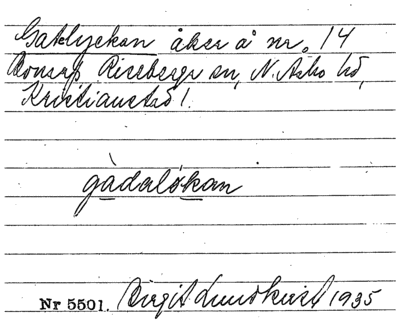 Gatlyckan åker å nr. 14
Bonarp Riseberga sn, N. Åsbo hd,
Kristianst. l.
gàdalýkan
Nr 5501. Birgit Lundkvist 1935